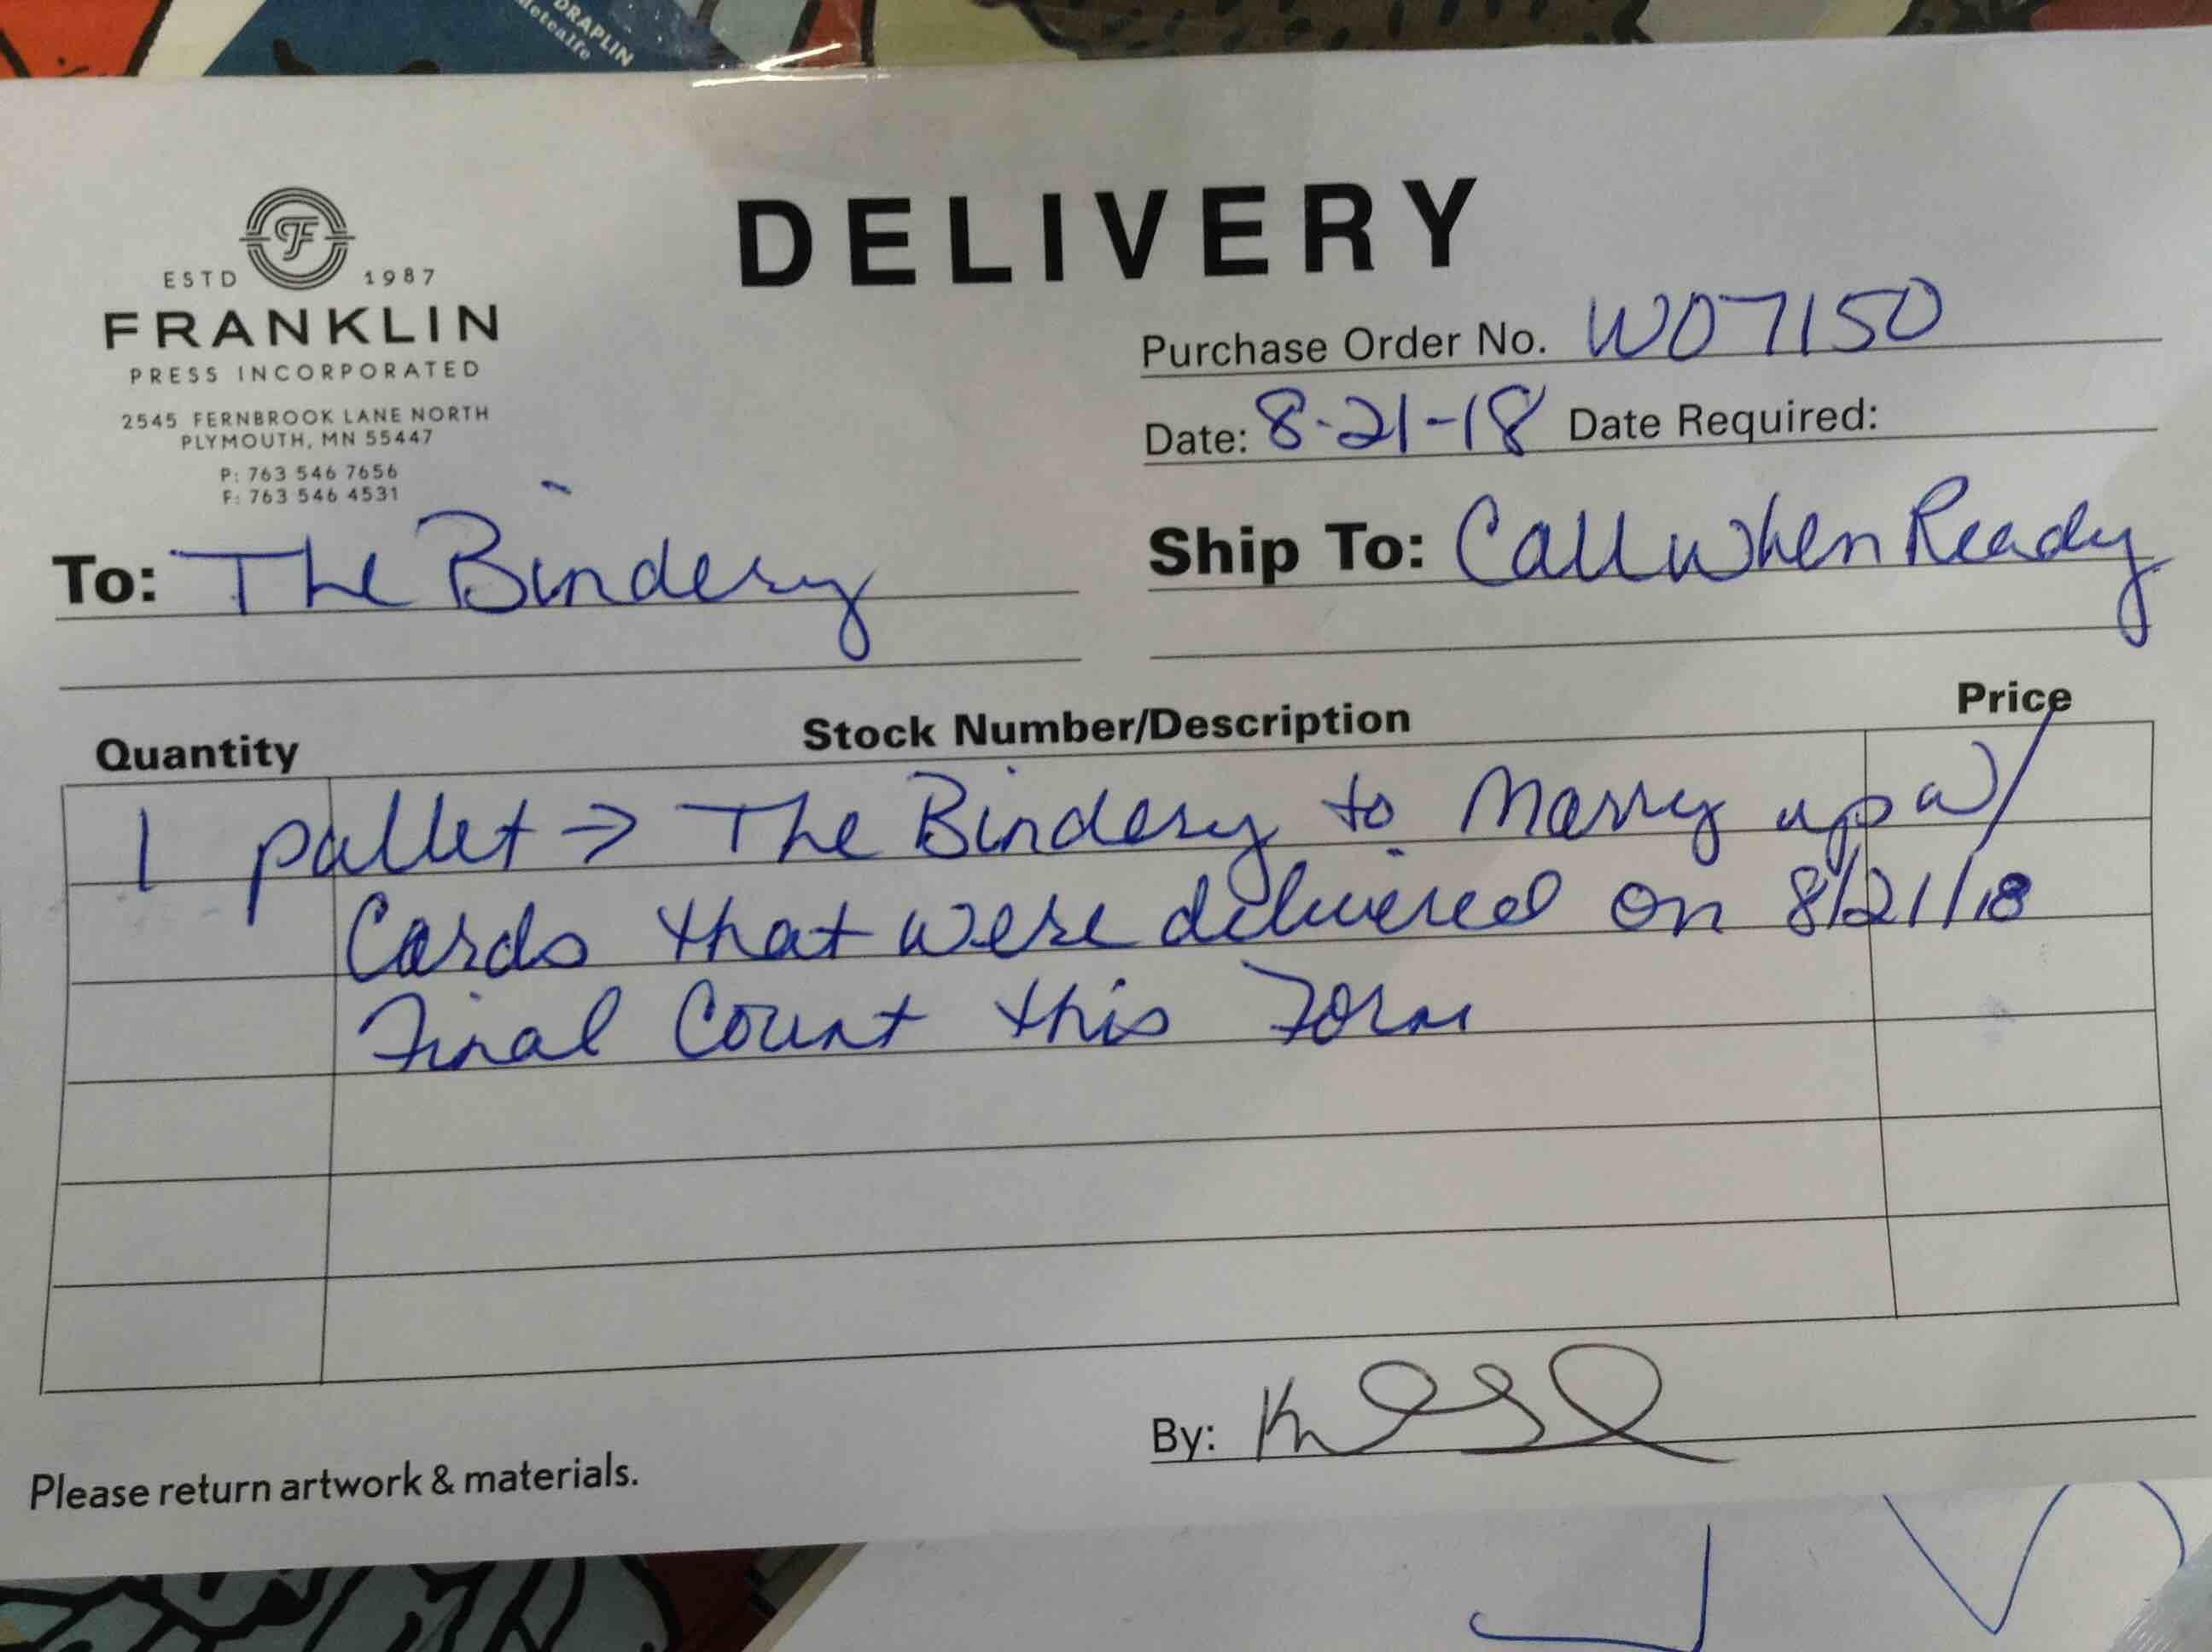 DRAPLIN
Metcalfe
DELIVERY
ESTD 1987
FRANKLIN
PRESS INCORPORATED
2545 FERNBROOK LANE NORTH
PLYMOUTH, MN 55447
P: 763 546 7656
F: 763 546 4531
Purchase Order No. WO7150
Date: 8-21-18 Date Required:
To: The Bindery
Ship To: Call when Ready
Quantity Stock Number/Description Price
1 pallet → The Bindery to Marry up w/
Cards that were delivered on 8/21/18
Final Count this Form
By:
Please return artwork & materials.